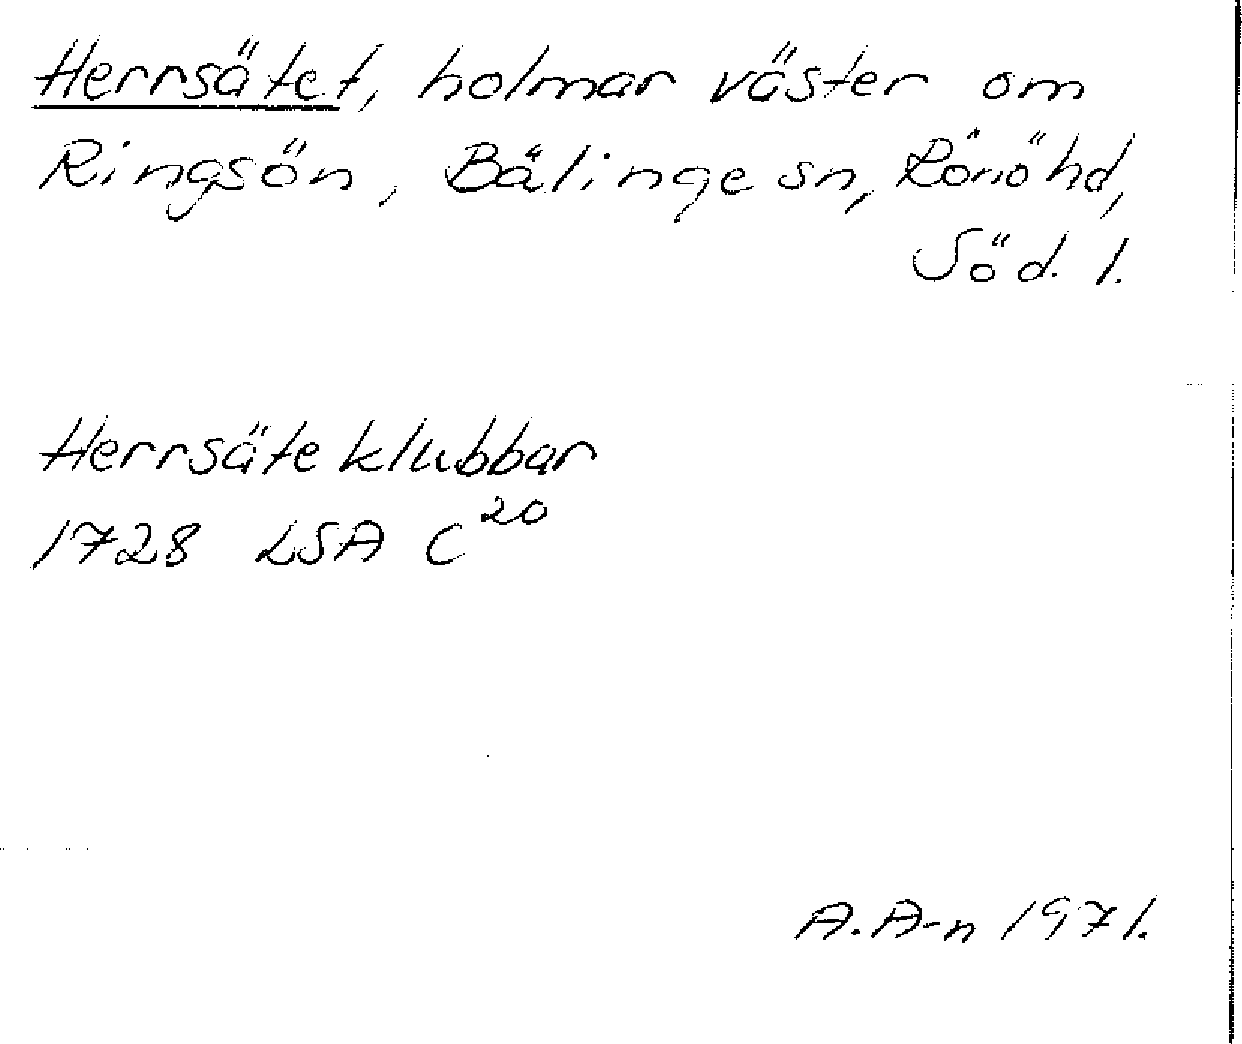 Herrsätet, holmar väster om
Ringsön, Bälinge sn, Rönö hd,
Söd. l.
Herrsäte klubbar
1728 LSA C 20
A.A-n 1971.